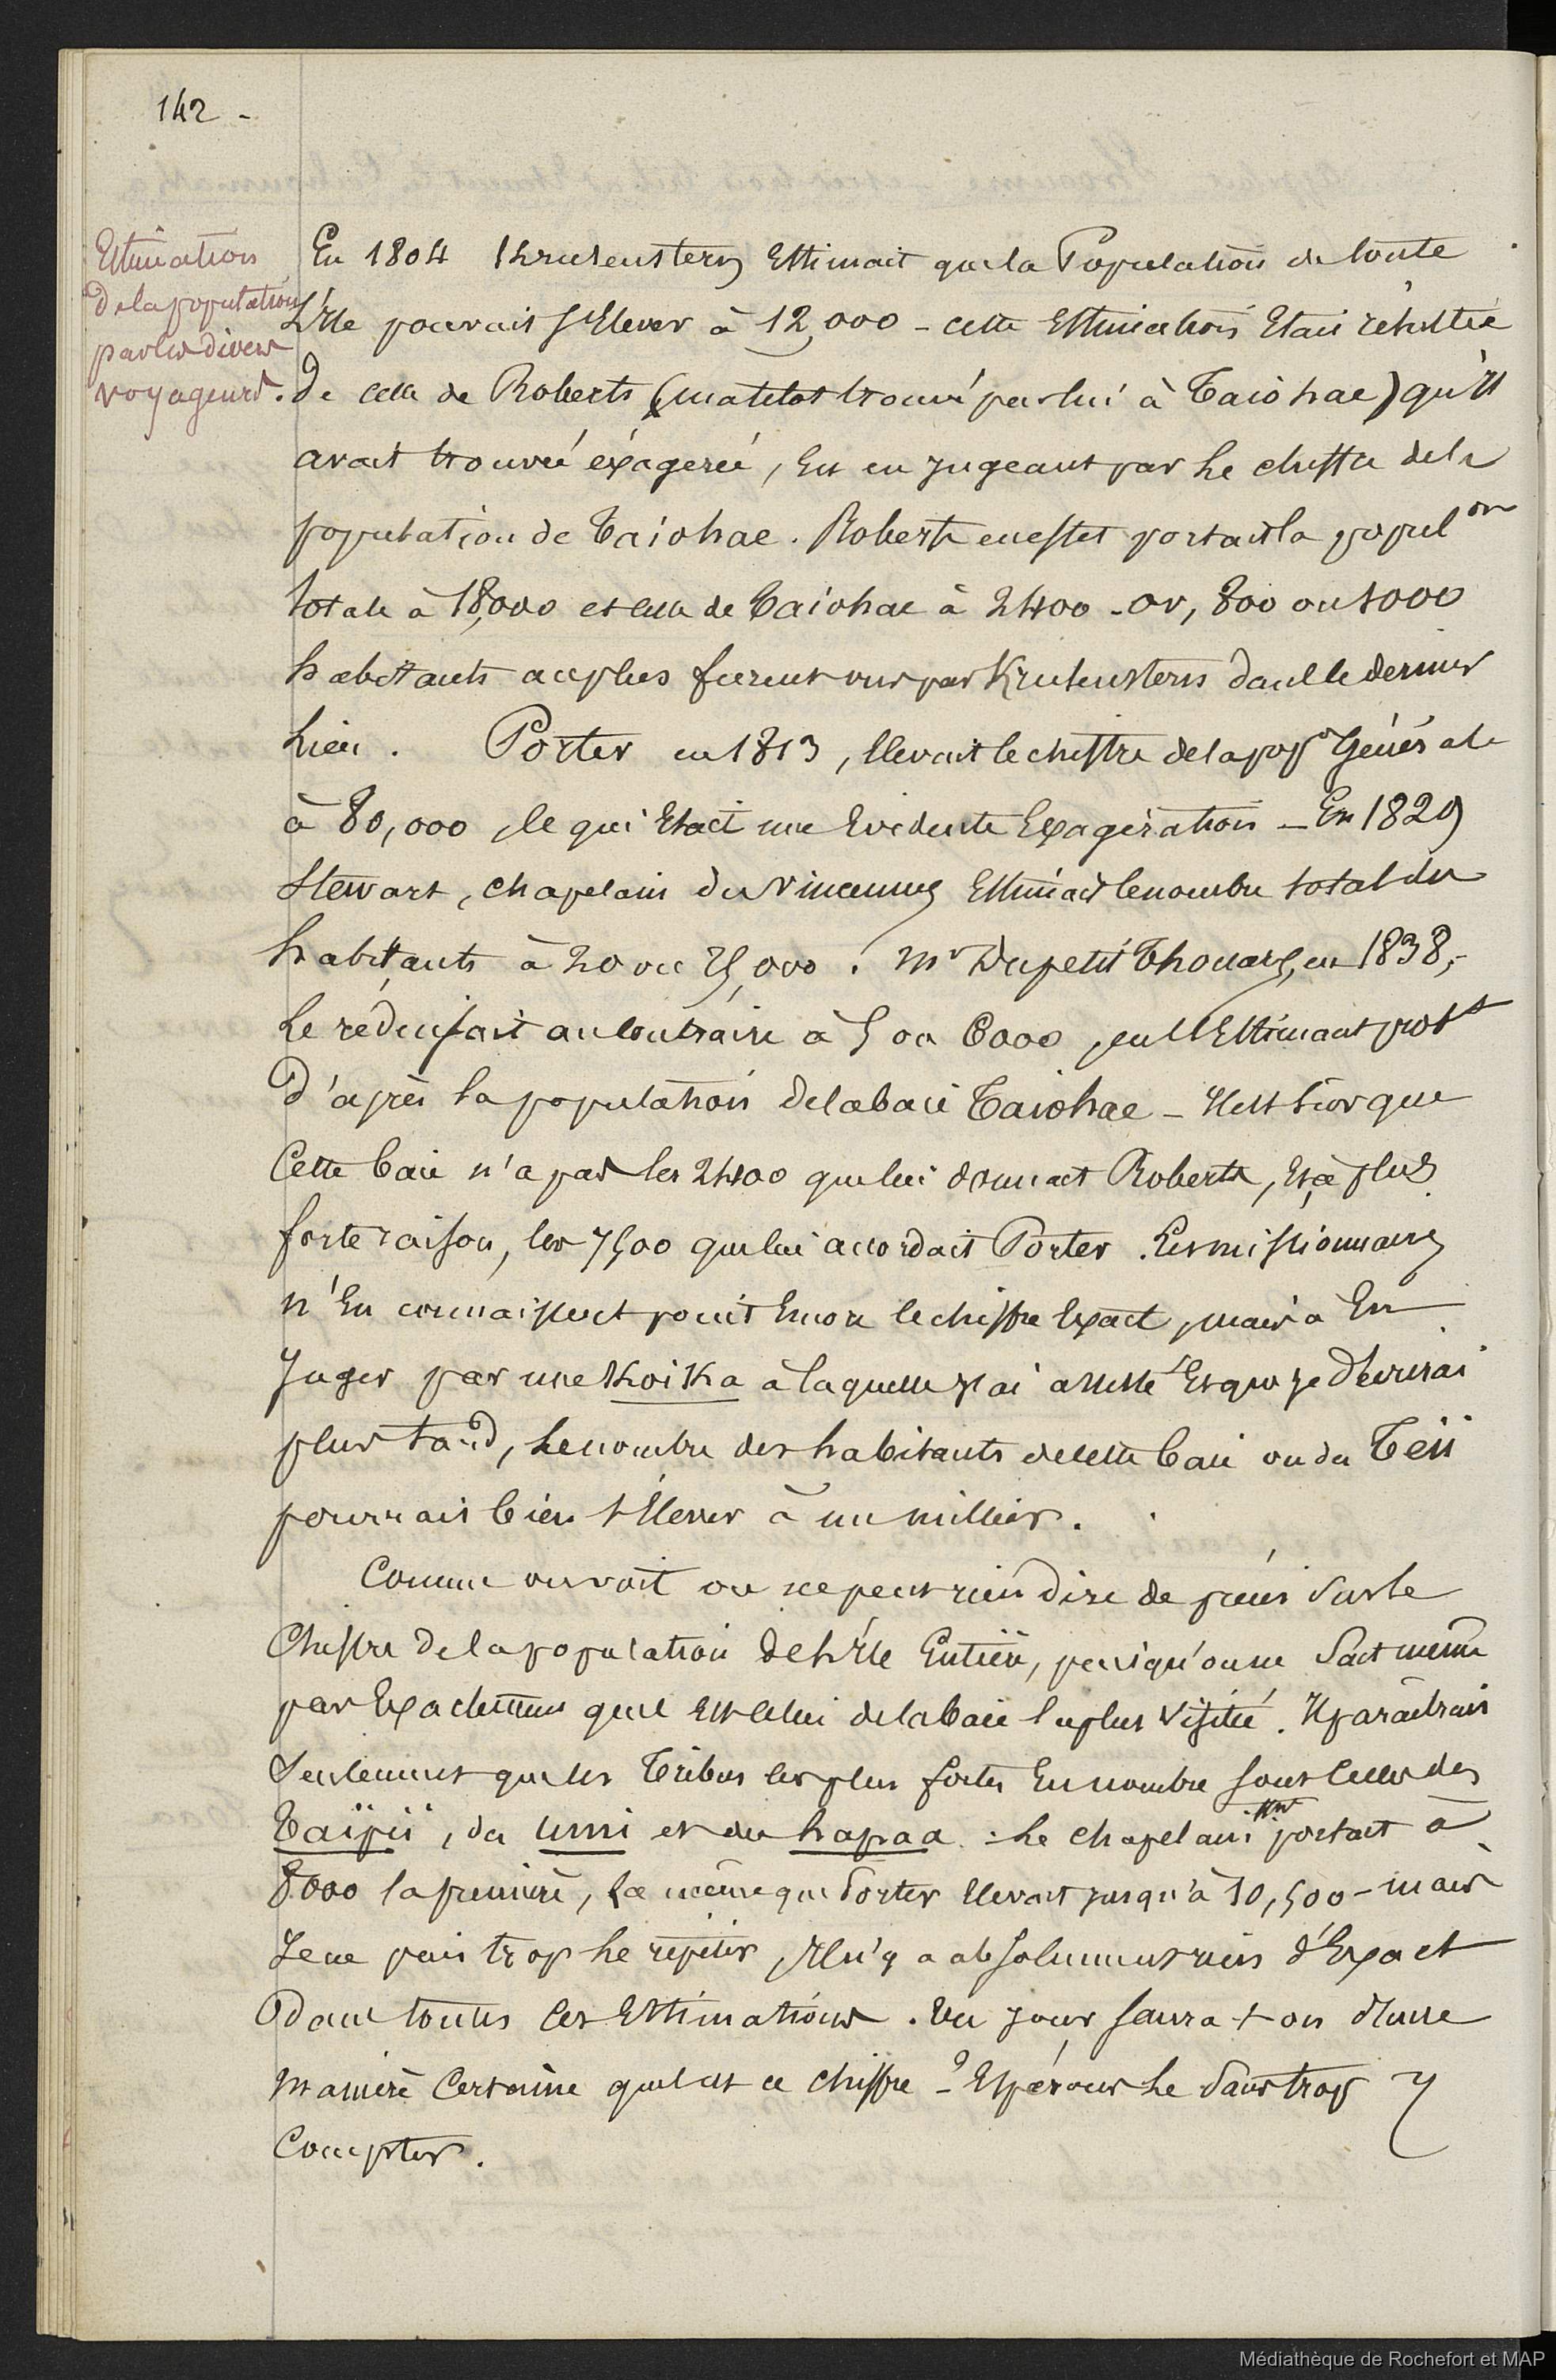 142 -
Estimation
de la population
par les divers
voyageurs.
En 1804 Krusenstern Estimait que la Population de toute
L'Ile pouvait s'Elever à 12,000 - cette Estimation Etait résultée
de celle de Roberts (matelot trouvé par lui à Taiohae) qu'il
avait trouvée éxagerée, En en jugeant par le chiffre de la
population de Taiohae. Roberts en effet portait la popul^on
totale à 18,000 et celle de Taiohae à 2400 - or, 800 ou 1000
habitants au plus furent vus par Krusenstern dans le dernier
Lieu. Porter en 1813, Elevait le chiffre de la pop^o Générale
à 80,000, ce qui Etait une Evidente Exagération - En 1829
Stewart, chapelain du Vincennes Estimait le nombre total des
habitants à 20 ou 25,000. M^r Dupetit Thouars, en 1838,-
Le réduisait au Contraire à 5 ou 6000, en l'Estimant prob^t
D'après la population de la baie Taiohae - Il est sûr que
Cette baie n'a pas les 2400 que lui donnait Roberts, Et à plus
forte raison, les 7500 que lui accordait Porter. Les missionnaires
n'En connaissent point Encore le chiffre Exact, mais à En
Juger par une Koika à laquelle j'ai assisté Et que je décrirai
plus tard, le nombre des habitants de cette baie ou du Téii
pourrait bien s'Elever à un millier.
Comme on voit on ne peut rien dire de précis sur le
Chiffre de la population de L'Ile Entière, puisqu'on ne Sait même
pas Exactement quel Est celui de la baie la plus visitée. Il paraîtrait
Seulement que les Tribus les plus fortes En nombre sont celles des
Taïpii, des Umi et des hapaa. Le chapelain portait à
8000 la première, la même que Porter Elevait jusqu'à 10,500 - mais
Je ne puis trop le répéter, Il n'y a absolument rien d'Exact
Dans toutes ces Estimations. Un jour saura-t-on d'une
manière Certaine quel est ce chiffre ? - Espérons le Sans trop y
Compter.
Médiathèque de Rochefort et MAP